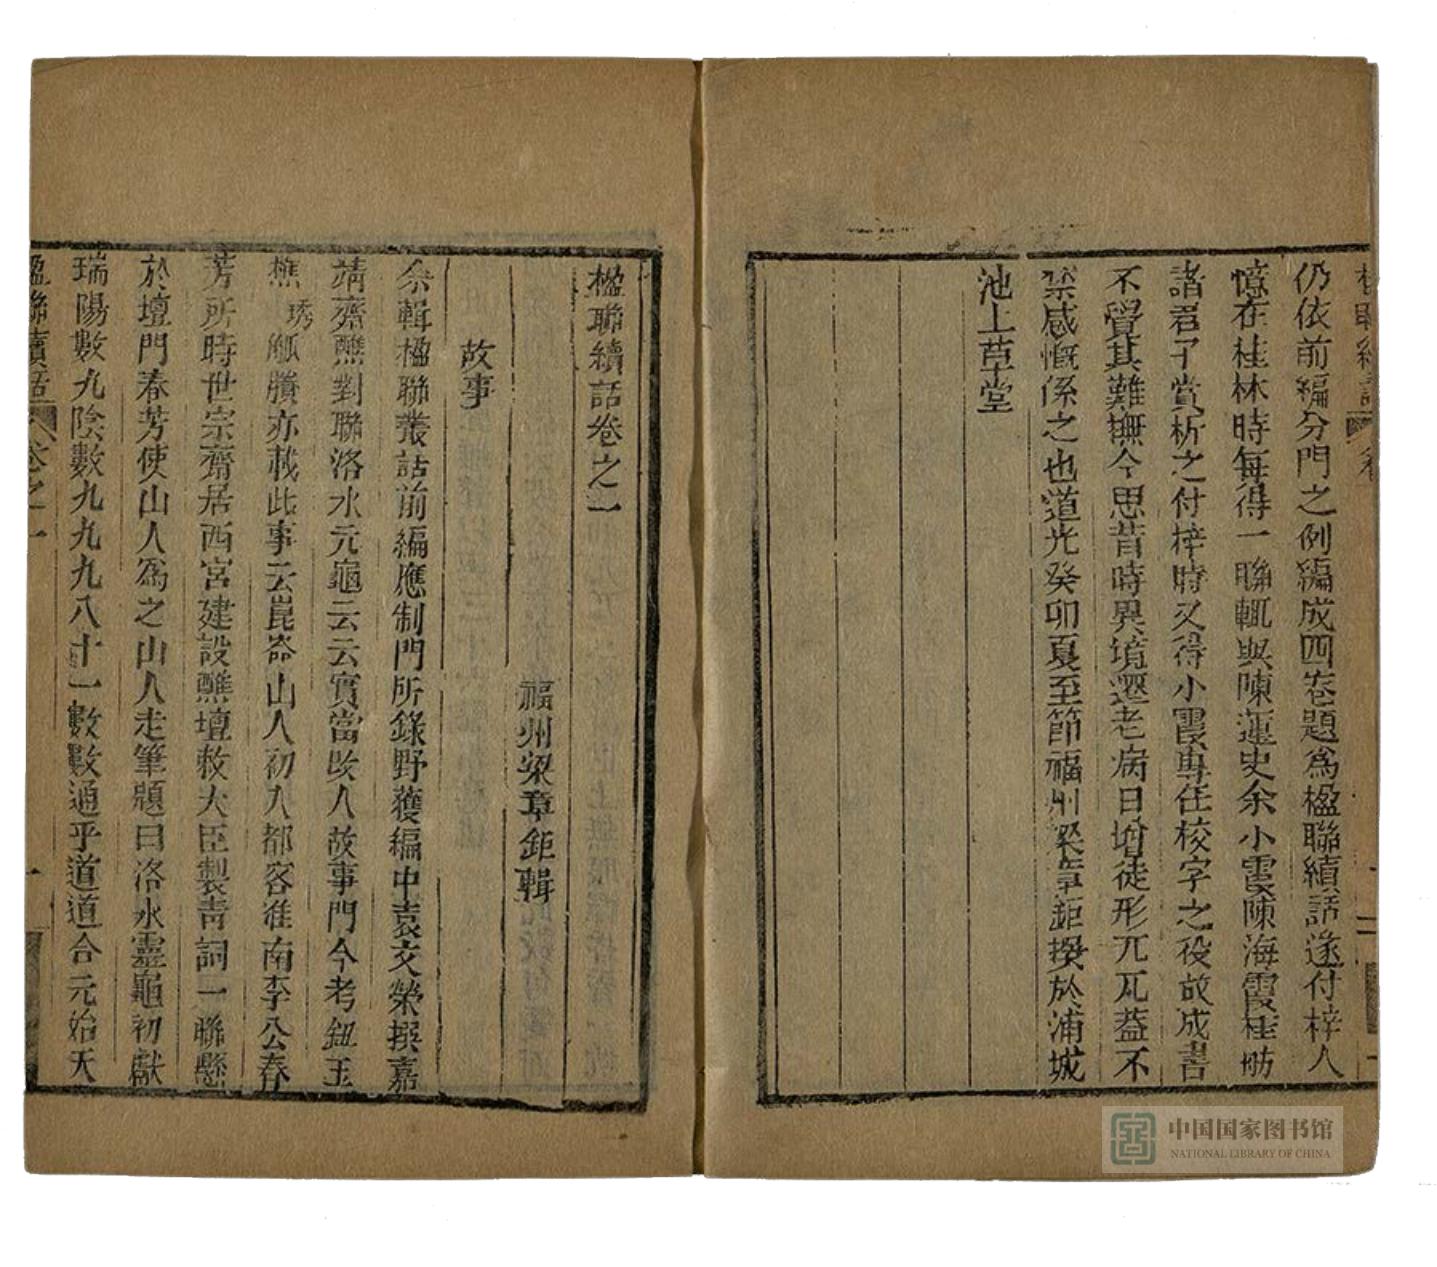 仍依前編分門之例編成四卷題爲楹聯續話遂付梓人
憶在桂林時每得一聯輒與陳蓮史余小霞陳海霞桂舫
諸君子賞析之付梓時又得小霞專任校字之役故成書
不覺其難撫今思昔時異境遷老病日增徒形兀兀葢不
禁感慨係之也道光癸卯夏至節福州梁章鉅撰於浦城
池上草堂
楹聯續話卷之一
福州梁章鉅輯
故事
余輯楹聯叢話前編應制門所錄野獲編中袁文榮撰嘉
靖齋醮對聯洛水元龜云云實當改入故事門今考鈕玉
樵琇觚賸亦載此事云崑崙山人初入都客淮南李公春
芳所時世宗齋居西宮建設醮壇敕大臣製靑詞一聯懸
於壇門春芳使山人爲之山人走筆題曰洛水靈龜初獻
瑞陽數九陰數九九九八十一數數通乎道道合元始天
楹聯續話 卷之一 一
中国国家图书馆
NATIONAL LIBRARY OF CHINA